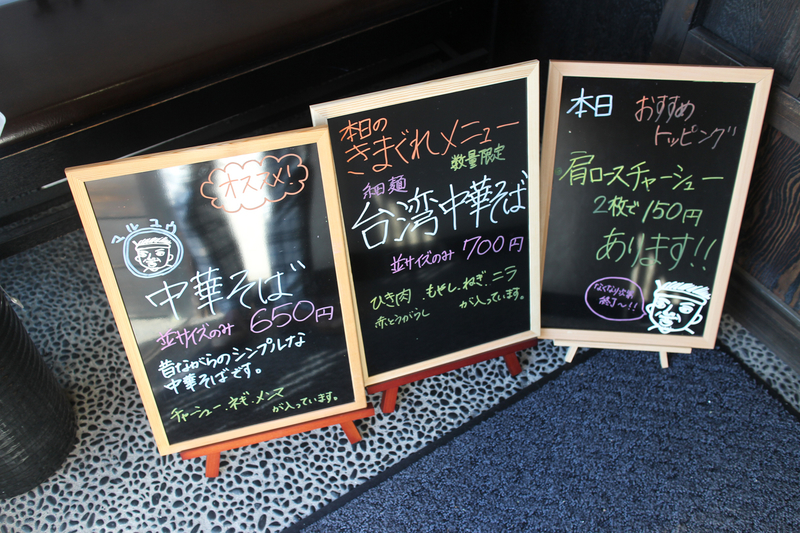 オススメ!
中華そば
並サイズのみ 650円
昔ながらのシンプルな
中華そばです。
チャーシュー、ネギ、メンマ
が入っています。
本日の
きまぐれメニュー
数量限定
細麺
台湾中華そば
並サイズのみ 700円
ひき肉、もやし、ねぎ、ニラ
赤とうがらし が入っています。
本日 おすすめ
トッピング
肩ロースチャーシュー
2枚で150円
あります!!
なくなり次第
終了〜!!